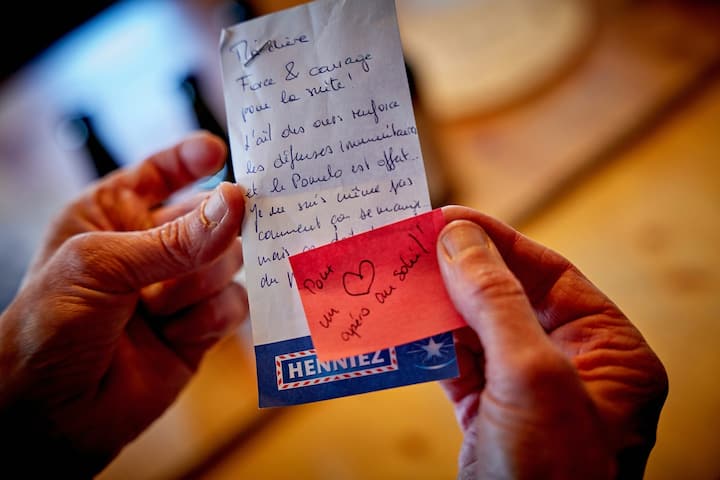 Force & courage
pour la suite!
L'ail des ours renforce
les défenses immunitaires
et le Pomelo est offert...
Je ne suis même pas
comment ça se mange
mais
du
Pour
un ♡
apéro au soleil!
HENNIEZ